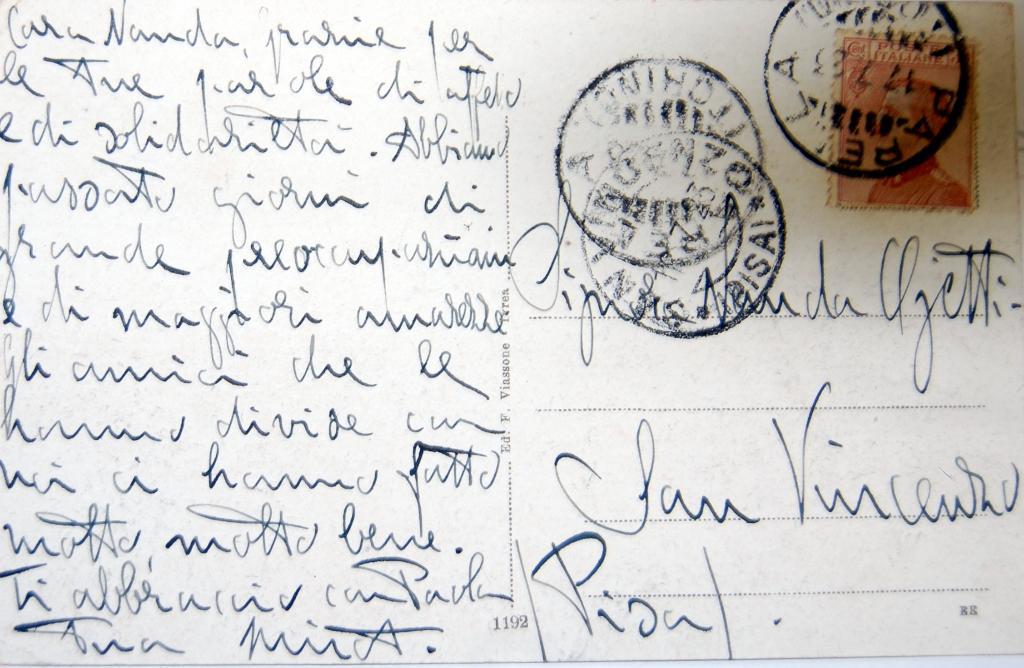 Cara Nanda, grazie per
le tue parole di affetto
e di solidarietà. Abbiamo
passato giorni di
grande preoccupazioni
e di maggiori amarezze
Gli amici che le
hanno divise con
noi ci hanno fatto
molto, molto bene.
Ti abbraccio con Paola
tua
Ed. F. Viassone Ivrea
1192
POSTE
ITALIANE
PARELLA
(TORINO)
S. VINCENZO
(PISA)
Nanda Ojetti-
San Vincenzo
(Pisa).